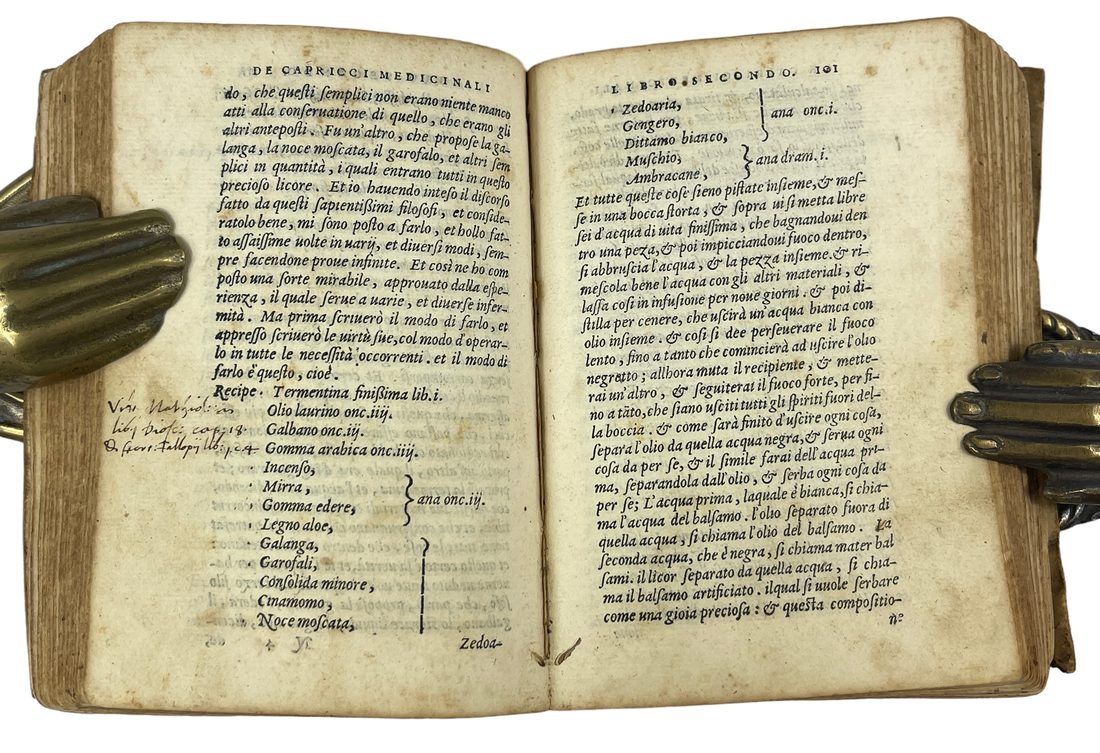 DE CAPRICCI MEDICINALI
do, che questi semplici non erano niente manco
atti alla conseruatione di quello, che erano gli
altri anteposti. Fu un'altro, che propose la ga-
langa, la noce moscata, il garofalo, et altri sem
plici in quantità, i quali entrano tutti in questo
precioso licore. Et io hauendo inteso il discorso
fatto da questi sapientißimi filosofi, et conside-
ratolo bene, mi sono posto a farlo, et hollo fat-
to assaissime uolte in uarij, et diuersi modi, sem-
pre facendone proue infinite. Et così ne ho com
posto una sorte mirabile, approuato dalla espe-
rienza, il quale serue a uarie, et diuerse infer-
mità. Ma prima scriuerò il modo di farlo, et
appresso scriuerò le virtù sue, col modo d'operar-
lo in tutte le necessità occorrenti. et il modo di
farlo è questo, cioè.
Recipe. Termentina finißima lib. i.
Olio laurino onc. iiij.
Galbano onc. iij.
Gomma arabica onc. iiij.
Incenso,
Mirra,
Gomma edere,
Legno aloe,
ana onc. iij.
Galanga,
Garofali,
Consolida minore,
Cinamomo,
Noce moscata,
Zedoa-
lib. cap. 18.
LIBRO SECONDO. 101
Zedoaria,
Gengero,
Dittamo bianco,
ana onc. i.
Muschio,
Ambracane,
ana dram. i.
Et tutte queste cose sieno pistate insieme, & mes-
se in una boccia storta, & sopra ui si metta libre
sei d'acqua di uita finißima, che bagnandoui den
tro una peza, & poi impicciandoui fuoco dentro,
si abbruscia l'acqua, & la pezza insieme. & ri-
mescola bene l'acqua con gli altri materiali, &
lassa cosi in infusione per noue giorni. & poi di-
stilla per cenere, che uscirà un'acqua bianca con
olio insieme. & cosi si dee perseuerare il fuoco
lento, fino a tanto che comincierà ad uscire l'olio
negretto; allhora muta il recipiente, & mette-
rai un'altro, & seguiterai il fuoco forte, per fi-
no a tãto, che siano usciti tutti gli spiriti fuori del-
la boccia. & come sarà finito d'uscire ogni cosa,
separa l'olio da quella acqua negra, & serua ogni
cosa da per se, & il simile farai dell'acqua pri-
ma, separandola dall'olio, & serba ogni cosa da
per se; L'acqua prima, laquale è bianca, si chia-
ma l'acqua del balsamo. l'olio separato fuora di
quella acqua, si chiama l'olio del balsamo. La
seconda acqua, che è negra, si chiama mater bal
sami. il licor separato da quella acqua, si chia-
ma il balsamo artificiato. ilqual si uuole serbare
come una gioia preciosa: & questa compositio-
nº